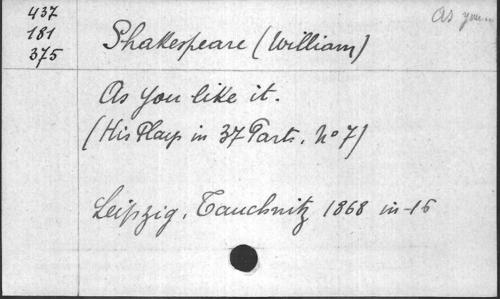 437
181
375
As you...
Shakespeare (William)
As you like it.
(His Plays in 37 Parts. No 7)
Leipzig. Tauchnitz 1868 in-16